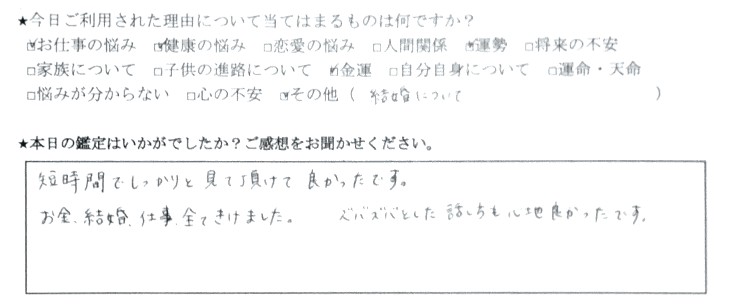 ★今日ご利用された理由について当てはまるものは何ですか？
☑お仕事の悩み ☑健康の悩み □恋愛の悩み □人間関係 ☑運勢 □将来の不安
□家族について □子供の進路について ☑金運 □自分自身について □運命・天命
□悩みが分からない □心の不安 ☑その他（ 結婚について ）
★本日の鑑定はいかがでしたか？ご感想をお聞かせください。
短時間でしっかりと見て頂けて良かったです。
お金、結婚、仕事、全てきけました。 ズバズバとした話しも心地良かったです。